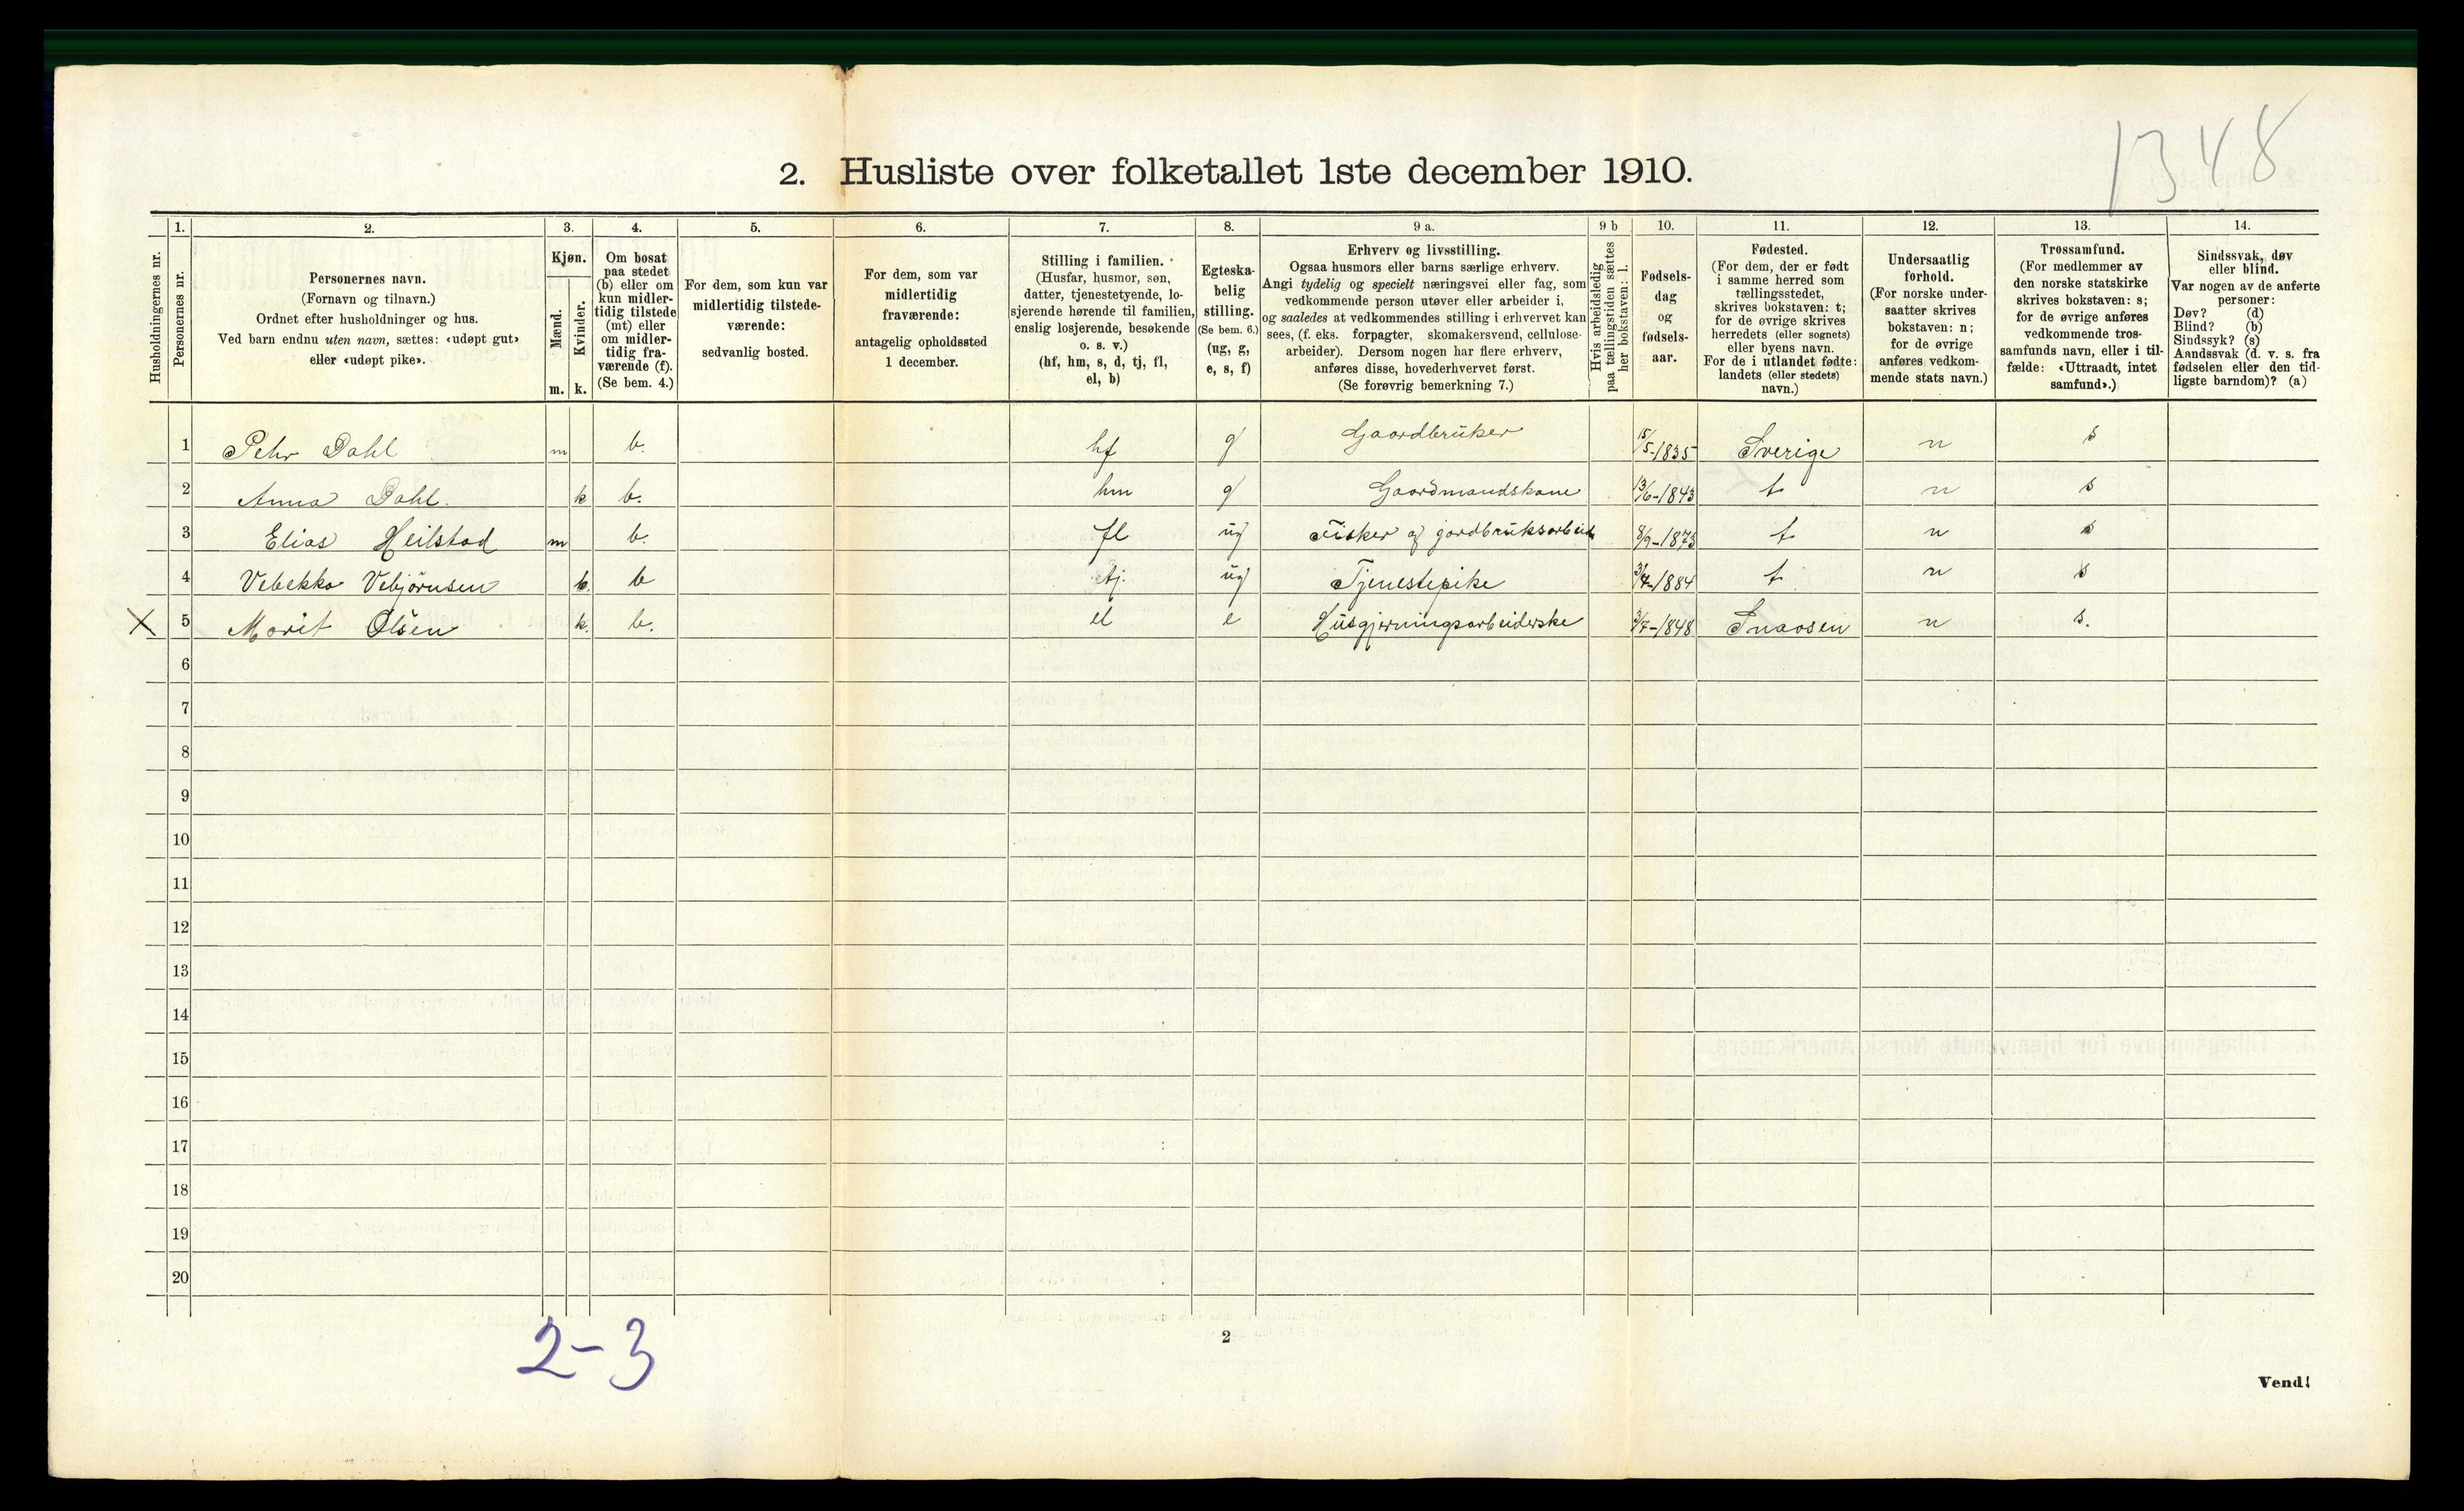 1348
2. Husliste over folketallet 1ste december 1910.
Husholdningernes nr.
1.
Personernes nr.
2.
Personernes navn.
(Fornavn og tilnavn.)
Ordnet efter husholdninger og hus.
Ved barn endnu uten navn, sættes: «udøpt gut»
eller «udøpt pike».
3.
Kjøn.
Mænd.
Kvinder.
m. k.
4.
Om bosat
paa stedet
(b) eller om
kun midler-
tidig tilstede
(mt) eller
om midler-
tidig fra-
værende (f).
(Se bem. 4.)
5.
For dem, som kun var
midlertidig tilstede-
værende:
sedvanlig bosted.
6.
For dem, som var
midlertidig
fraværende:
antagelig opholdssted
1 december.
7.
Stilling i familien.
(Husfar, husmor, søn,
datter, tjenestetyende, lo-
sjerende hørende til familien,
enslig losjerende, besøkende
o. s. v.)
(hf, hm, s, d, tj, fl,
el, b)
8.
Egteska-
belig
stilling.
(Se bem. 6.)
(ug, g,
e, s, f)
9 a.
Erhverv og livsstilling.
Ogsaa husmors eller barns særlige erhverv.
Angi tydelig og specielt næringsvei eller fag, som
vedkommende person utøver eller arbeider i,
og saaledes at vedkommendes stilling i erhvervet kan
sees, (f. eks. forpagter, skomakersvend, cellulose-
arbeider). Dersom nogen har flere erhverv,
anføres disse, hovederhvervet først.
(Se forøvrig bemerkning 7.)
9 b
Hvis arbeidsledig
paa tællingstiden sættes
her bokstaven: l.
10.
Fødsels-
dag
og
fødsels-
aar.
11.
Fødested.
(For dem, der er født
i samme herred som
tællingsstedet,
skrives bokstaven: t;
for de øvrige skrives
herredets (eller sognets)
eller byens navn.
For de i utlandet fødte:
landets (eller stedets)
navn.)
12.
Undersaatlig
forhold.
(For norske under-
saatter skrives
bokstaven: n;
for de øvrige
anføres vedkom-
mende stats navn.)
13.
Trossamfund.
(For medlemmer av
den norske statskirke
skrives bokstaven: s;
for de øvrige anføres
vedkommende tros-
samfunds navn, eller i til-
fælde: «Uttraadt, intet
samfund».)
14.
Sindssvak, døv
eller blind.
Var nogen av de anførte
personer:
Døv? (d)
Blind? (b)
Sindssyk? (s)
Aandssvak (d. v. s. fra
fødselen eller den tid-
ligste barndom)? (a)
1 Pehr Dahl m b. hf g Gaardbruker 15/5-1835 Sverige n s
2 Anna Dahl. k b. hm g Gaardmandskone 13/6-1843 t n s
3 Elias Heilstad m b. fl ug Fisker og gardbruksarbeid 8/9-1873 t n s
4 Vebekka Vebjørnsen k. b tj. ug Tjenestepike t n s
X 5 Marit Olsen k. b. el e Husgjerningsarbeiderske 3/7-1848 Snaasen n s.
6
7
8
9
10
11
12
13
14
15
16
17
18
19
20
2-3
2
Vend!